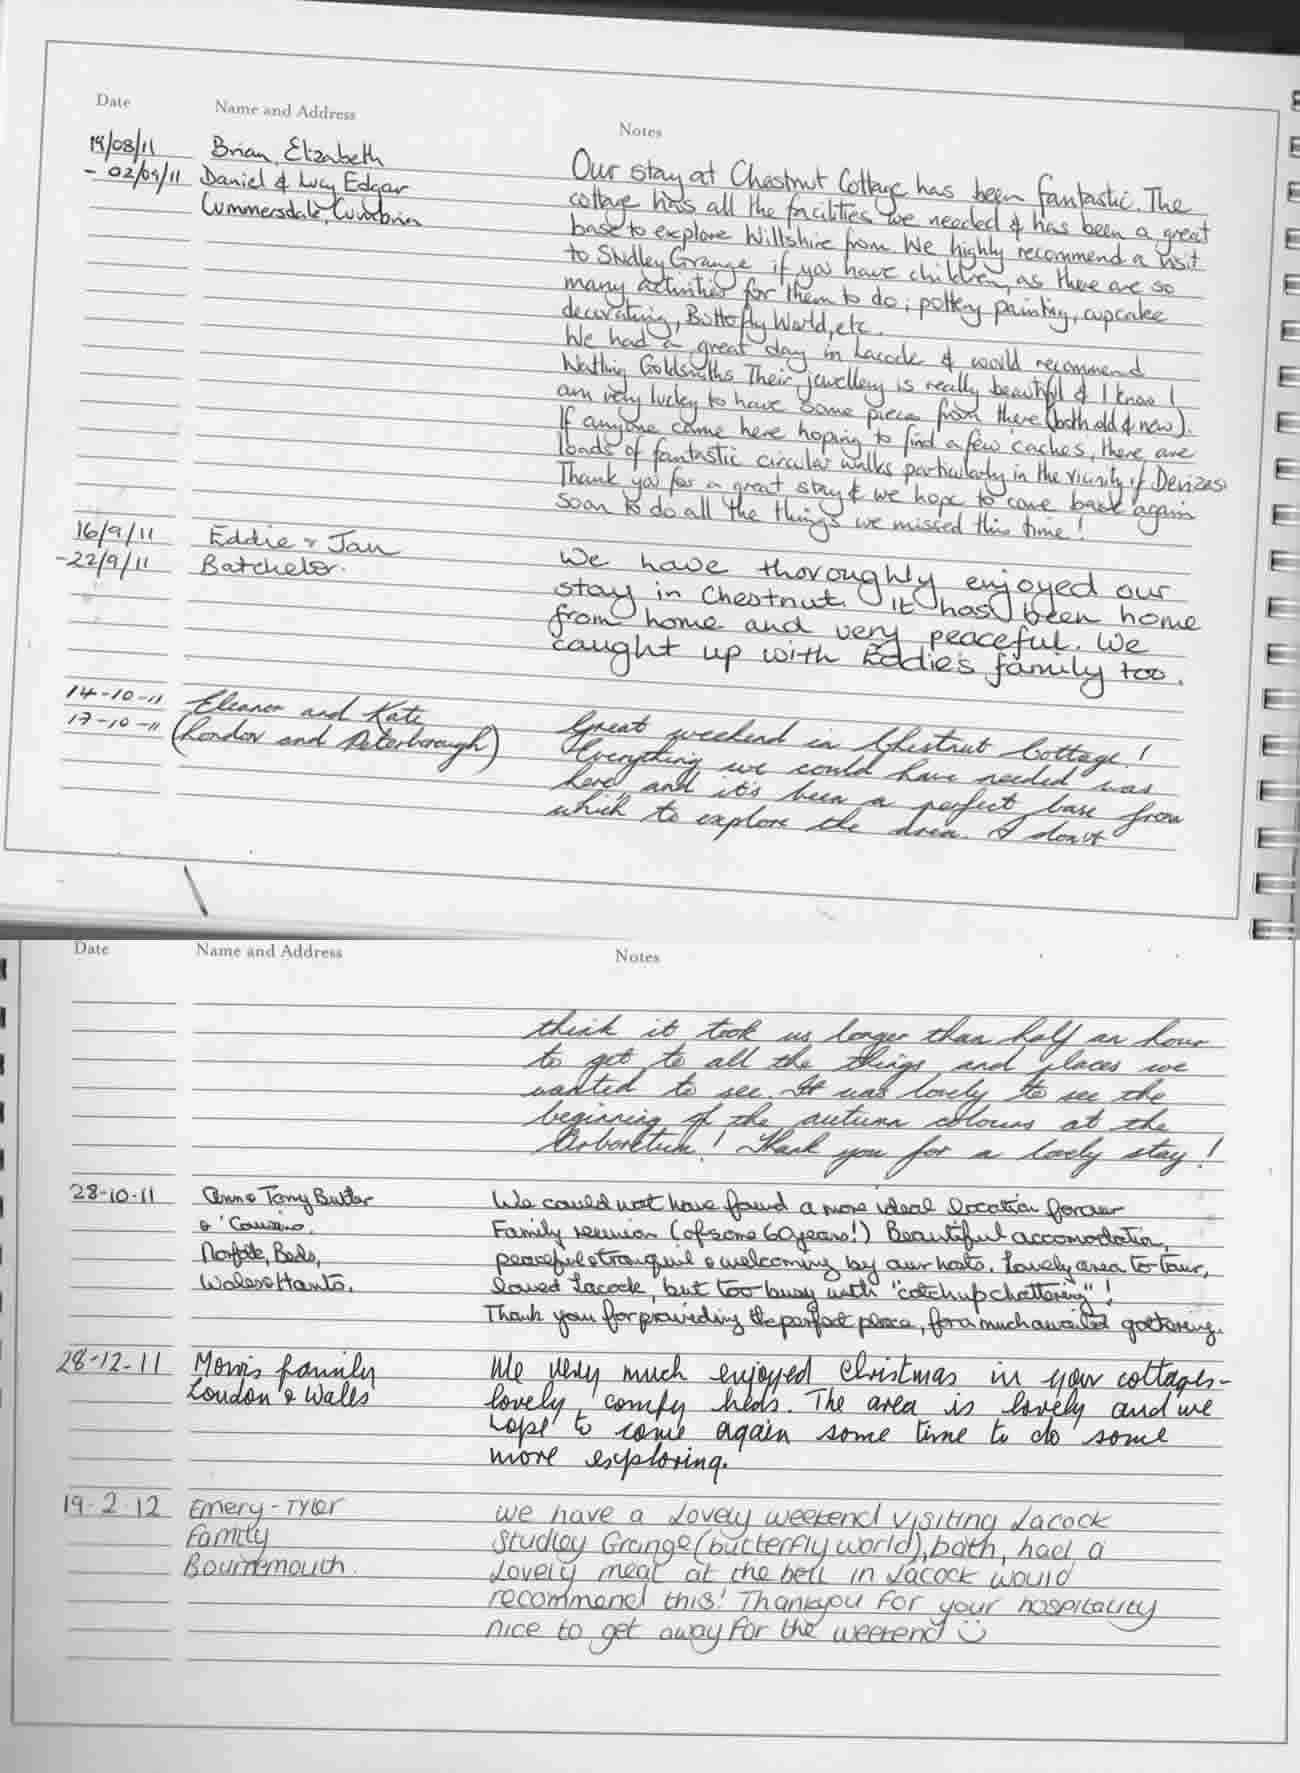 Date Name and Address Notes
19/08/11 Brian, Elizabeth
- 02/09/11 Daniel & Lucy Edgar
Cummersdale, Cumbria
Our stay at Chestnut Cottage has been fantastic. The
cottage has all the facilities we needed & has been a great
base to explore Willshire from. We highly recommend a visit
to Studley Grange if you have children, as there are so
many activities for them to do; pottery painting, cupcake
decorating, Butterfly World, etc.
We had a great day in Lacock & would recommend
Watling Goldsmiths. Their jewellery is really beautiful & I know I
am very lucky to have some pieces from there (both old & new).
If anyone came here hoping to find a few 'caches, there are
loads of fantastic circular walks particularly in the vicinity of Devizes.
Thank you for a great stay & we hope to come back again
soon to do all the things we missed this time!
16/9/11 Eddie & Jan
-22/9/11 Batchelor.
We have thoroughly enjoyed our
stay in Chestnut. It has been home
from home and very peaceful. We
caught up with Eddie's family too.
14-10-11 Eleanor and Kate
17-10-11 (London and Peterborough)
Great weekend in Chestnut Cottage!
Everything we could have needed was
here, and it's been a perfect base from
which to explore the area. I don't
Date Name and Address Notes
think it took us longer than half an hour
to get to all the things and places we
wanted to see. It was lovely to see the
beginning of the autumn colours at the
Arboretum! Thank you for a lovely stay!
28-10-11 Ann & Tony Butler
& 'Cousins.
Norfolk, Beds,
Wales & Hants.
We could not have found a more ideal location for our
Family reunion (of some 60 years!) Beautiful accomodation,
peaceful & tranquil & welcoming by our hosts. Lovely area to tour,
loved Lacock, but too busy with "catch up chattering"!
Thank you for providing the perfect place, for a much awaited gathering.
28-12-11 Morris family
London & Wales
We very much enjoyed Christmas in your cottages -
lovely, comfy beds. The area is lovely and we
hope to come again some time to do some
more exploring.
19-2-12 Emery-Tyler
Family
Bournemouth.
we have a lovely weekend visiting Lacock
Studley Grange (butterfly world), bath, had a
lovely meal at the bell in Lacock would
recommend this! Thankyou for your hospitality
nice to get away for the weekend ☺